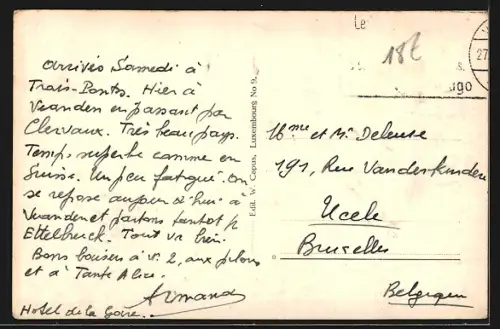 Le
18f
27.
ugo
Arrivés Samedi à
Trois-Ponts. Hier à
Vianden en passant par
Clervaux. Très beau pays.
Temps superbe comme en
Suisse. Un peu fatigué. On
se repose aujourd'hui à
Vianden et partons tantôt p
Ettelbruck. Tout va bien.
Bons baisers à v. 2, aux
et à Tante Alice.
Armand
Hotel de la Gare.
Edit. W. Capus, Luxembourg No 9.
Mme et Mr Deleuse
191, Rue Vanderkindere
Uccle
Bruxelles
Belgique